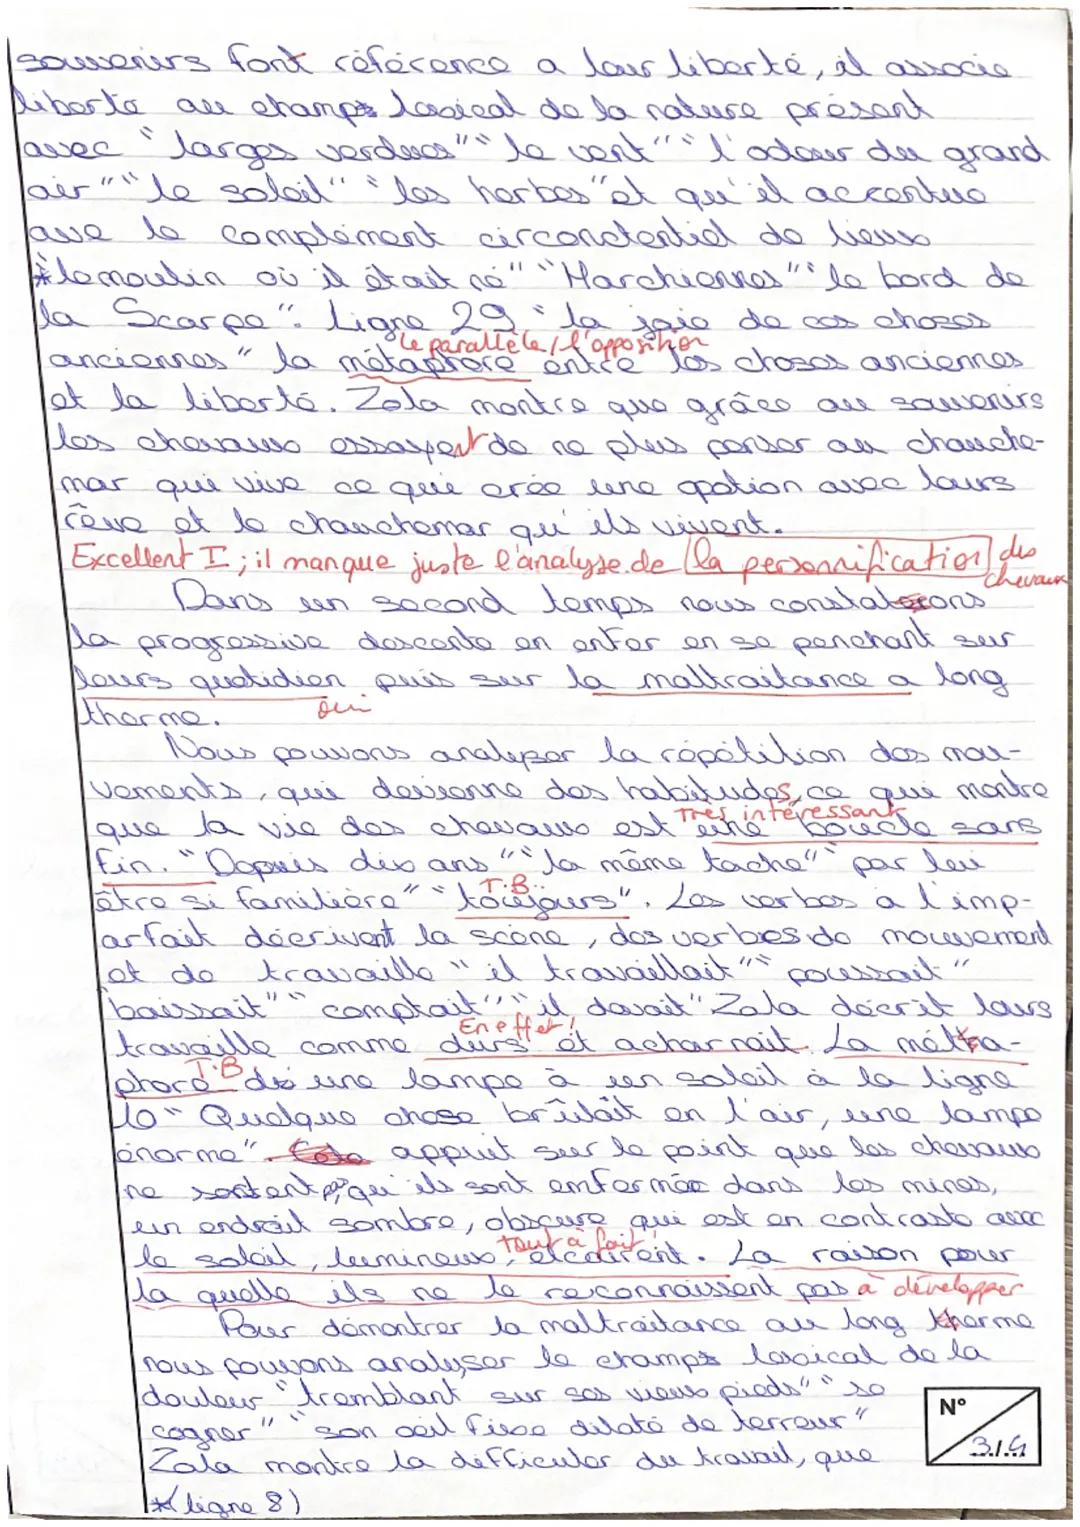 souvenirs font référence a leur liberté, il associe
liberté au champs lexical de la nature présent
avec "larges verdues" "le vent" "l'odeur du grand
air" "le soleil" "les herbes" et qu'il accentue
ave le complément circonstentiel de lieux
*"lemoulin où il était né" "Marchiennes" "le bord de
la Scarpe". Ligne 29 "la joie de ces choses
le parallèle / l'opposition
anciennes" la métaphore entre les choses anciennes
et la liberté. Zola montre que grâce au souvenirs
les chevaux essayent de ne plus penser au chauche-
mar qui vive ce qui crée une opotion avec leurs
rêve et le chauchemar qu'ils vivent.
Excellent I ; il manque juste l'analyse de la personnification des
chevaux
Dans un second temps nous constaterons
la progressive descente en enfer en se penchant sur
leurs quotidien puis sur la maltraitance a long
therme. oui
Nous pouvons analyser la répétition des mou-
vements, qui devienne des habitudes, ce qui montre
Très intéressant
que la vie des chevaux est une boucle sans
fin. "Depuis dix ans" "la même tache" "par lui
T.B.
être si familière" "toujours". Les verbes à l'imp-
arfait décrivent la scène, des verbes de mouvement
et de travaille "il travaillait" "poussait"
"baissait" "comptait" "il devait" Zola décrit leurs
En effet !
travaille comme durs et acharnait. La méta-
T.B
phore de une lampe à un soleil à la ligne
10 "Quelque chose brûlait en l'air, une lampe
énorme". appuit sur le point que les chevaux
ne sortent p, qu'ils sont enfermée dans les mines,
un endroit sombre, obscure qui est en contraste avec
tout à fait
le soleil, lumineux, elcairent. La raison pour
la quelle ils ne le reconnaissent pas à développer
Pour démontrer la maltraitance au long therme
nous pouvons analyser le champs lexical de la
douleur "tremblant sur ses vieux pieds" "se
cogner" "son oeil fixe dilaté de terreur"
Zola montre la difficulter du travail, que
*(ligne 8)
N°
3.1.4